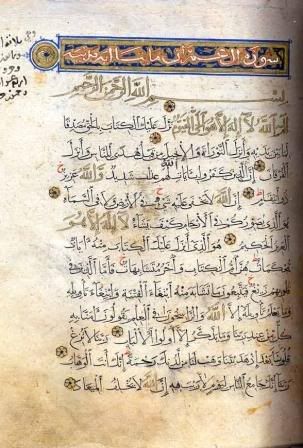 سورة آل عمران مايتا آية مدنية
بسم الله الرحمن الرحيم
الم الله لا إله إلا هو الحي القيوم نزل عليك الكتاب بالحق مصدقا
لما بين يديه وأنزل التورية والإنجيل من قبل هدى للناس وأنزل
الفرقان إن الذين كفروا بآيات الله لهم عذاب شديد والله عزيز
ذو انتقام إن الله لا يخفى عليه شيء في الأرض ولا في السماء
هو الذي يصوركم في الأرحام كيف يشاء لا إله إلا هو
العزيز الحكيم هو الذي أنزل عليك الكتاب منه آيات
محكمات هن أم الكتاب وأخر متشابهات فأما الذين في
قلوبهم زيغ فيتبعون ما تشابه منه ابتغاء الفتنة وابتغاء تأويله
وما يعلم تأويله إلا الله والراسخون في العلم يقولون آمنا به
كل من عند ربنا وما يذكر إلا أولوا الألباب ربنا لا تزغ
قلوبنا بعد إذ هديتنا وهب لنا من لدنك رحمة إنك أنت الوهاب
ربنا إنك جامع الناس ليوم لا ريب فيه إن الله لا يخلف الميعاد